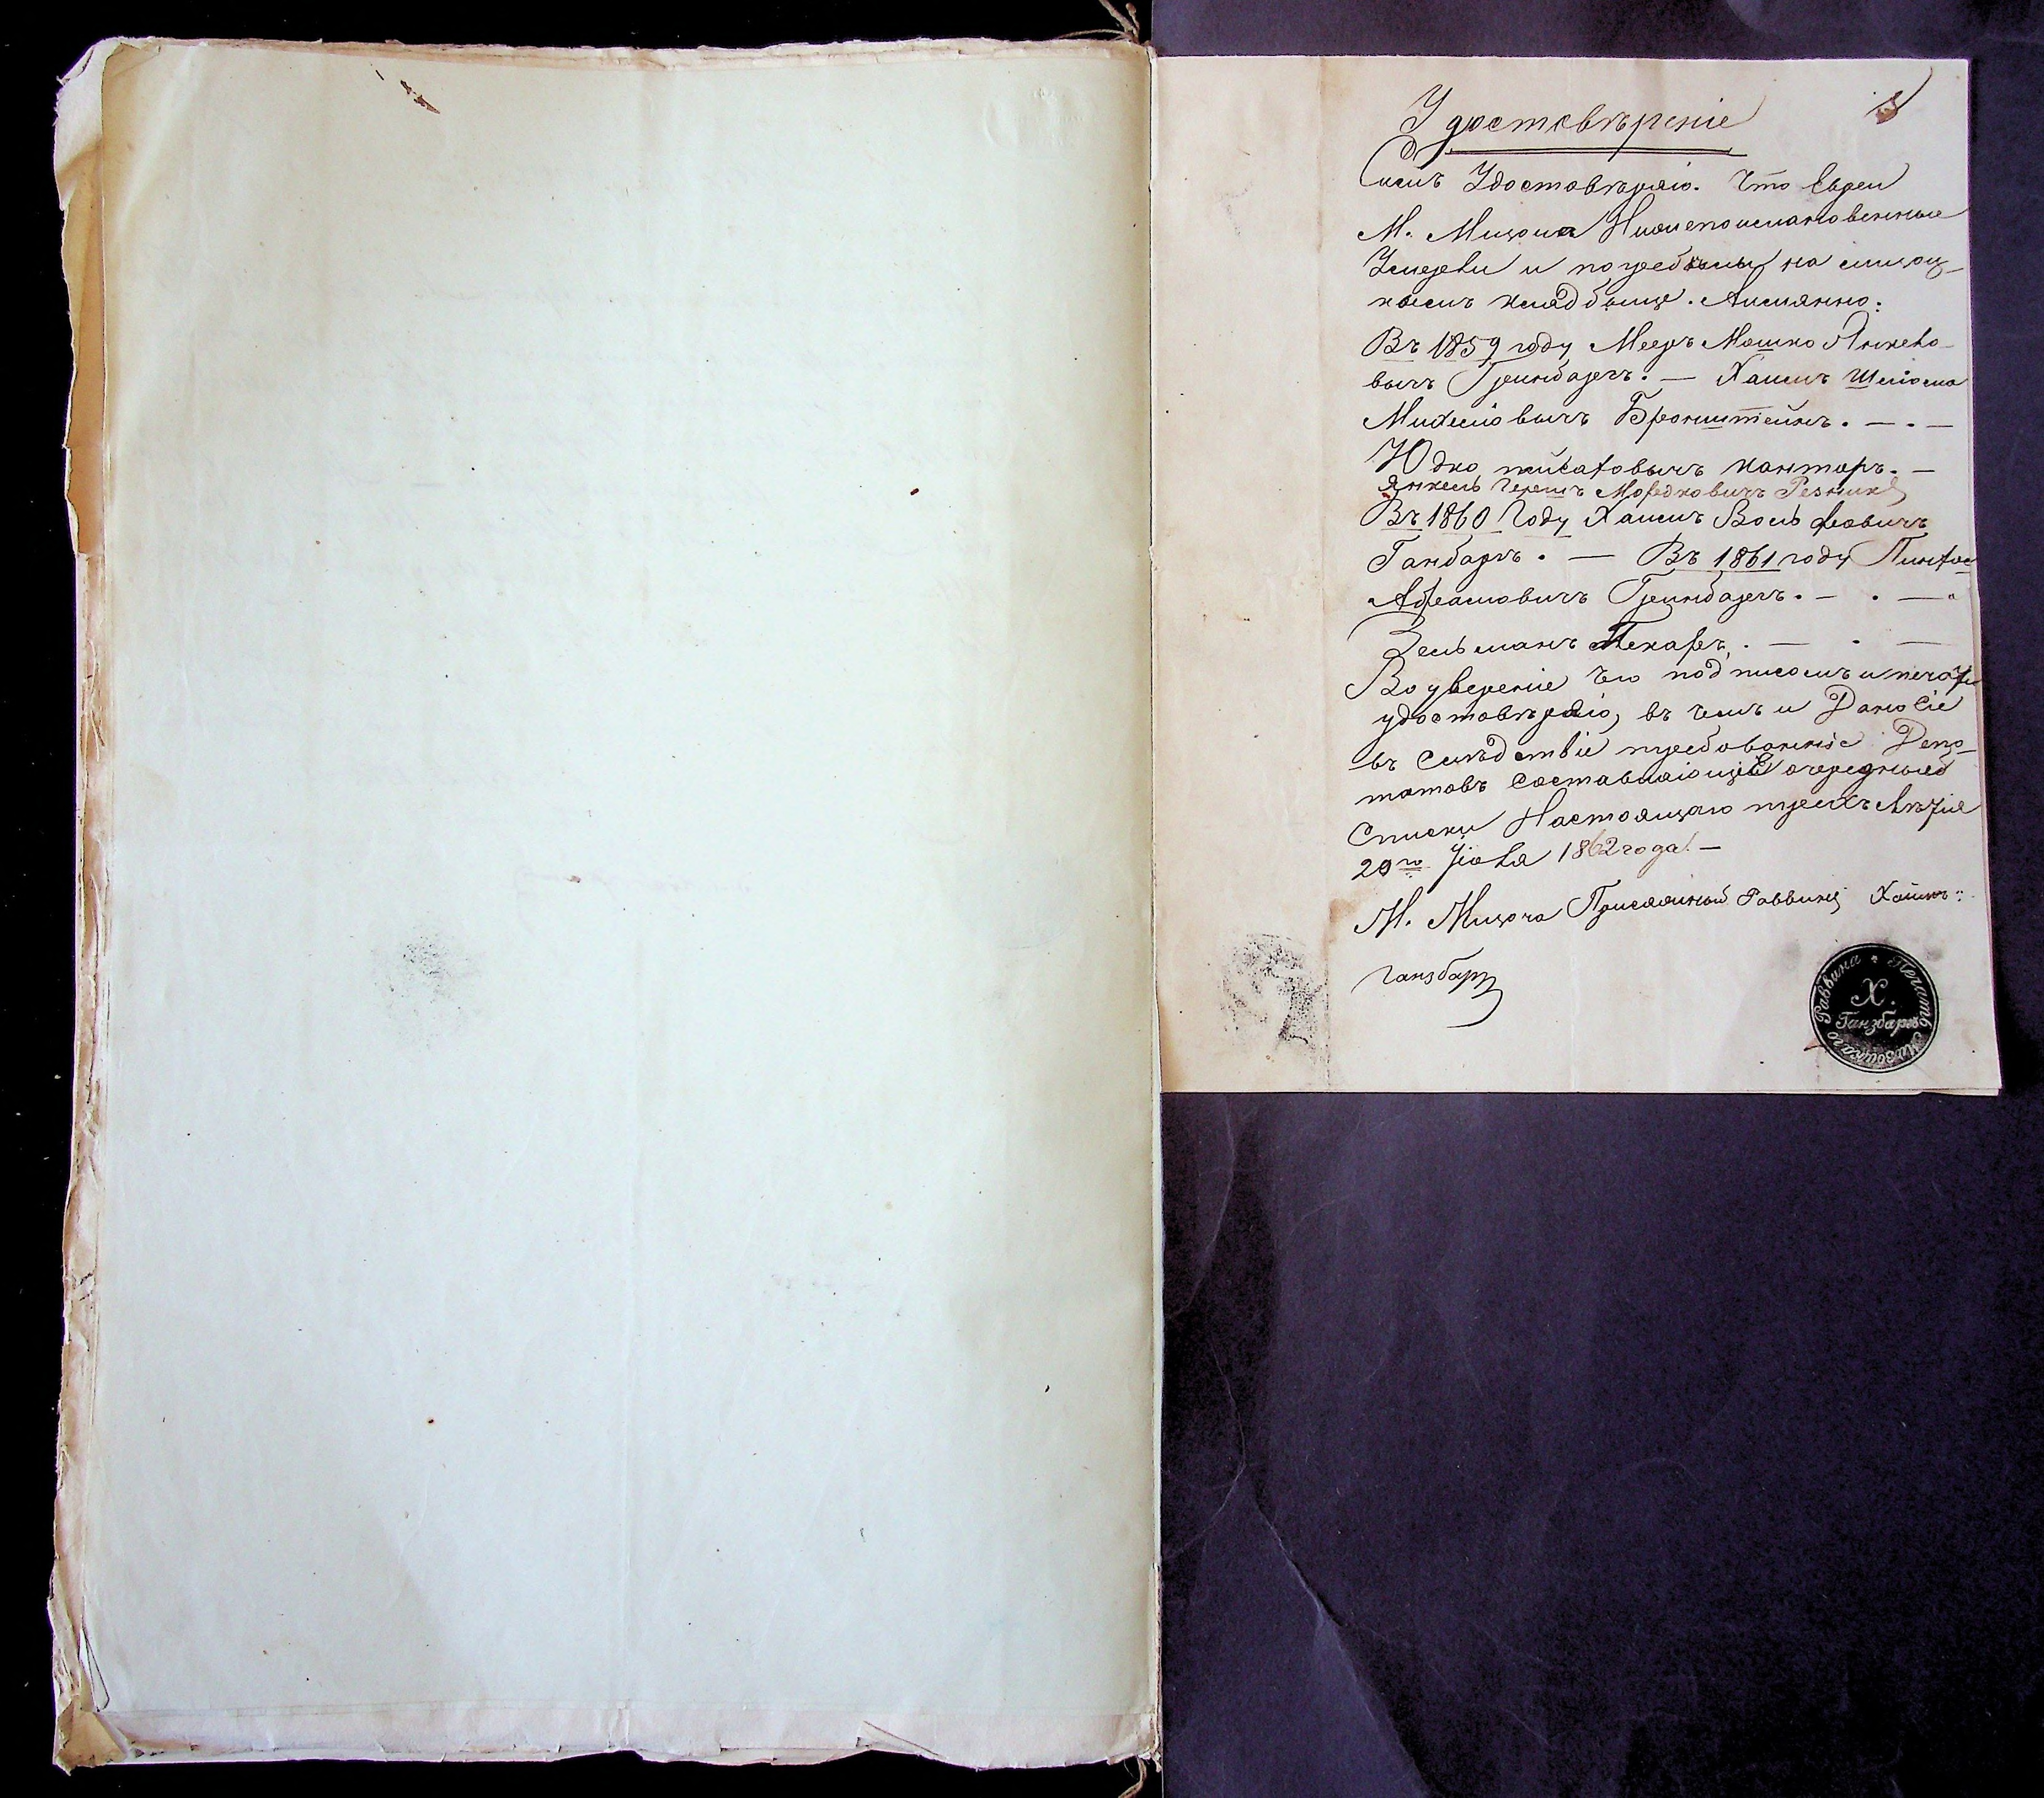 Удостовѣреніе
Симъ Удостовѣряю. Что Евреи
М. Мизоча Нижепоименованные
Умерли и погребены на мизоц-
комъ кладбище. Аимянно:
Въ 1859 году Мееръ Мошко Янкело-
вичъ Гринбаргъ. — Хаимъ Шліома
Михелiовичъ Бронштейнъ. — . —
Юдко канторъ. —
Янкель Гершъ Мордковичъ Резникъ
Въ 1860 Году Хаимъ Вольфовичъ
Ганбаргъ. — Въ 1861 году Пинхас
Абрамовичъ Гринбаргъ. — . —
Зельманъ Пекаръ. — . —
Во уверение Чего подписомъ и печатю
удостовѣряю, въ чемъ и Дано Сіе
въ Слѣдствіе требованніе Депо-
татовъ Составляющіе очередные
Списки Настоящаго трехъ Лѣтія
20го Іюля 1862 года. —
М. Мизоча Присяжный Раввинъ Хаимъ
Ганзбаргъ
Печать Мизоцкаго Раввина
Х.
Ганзбаргъ